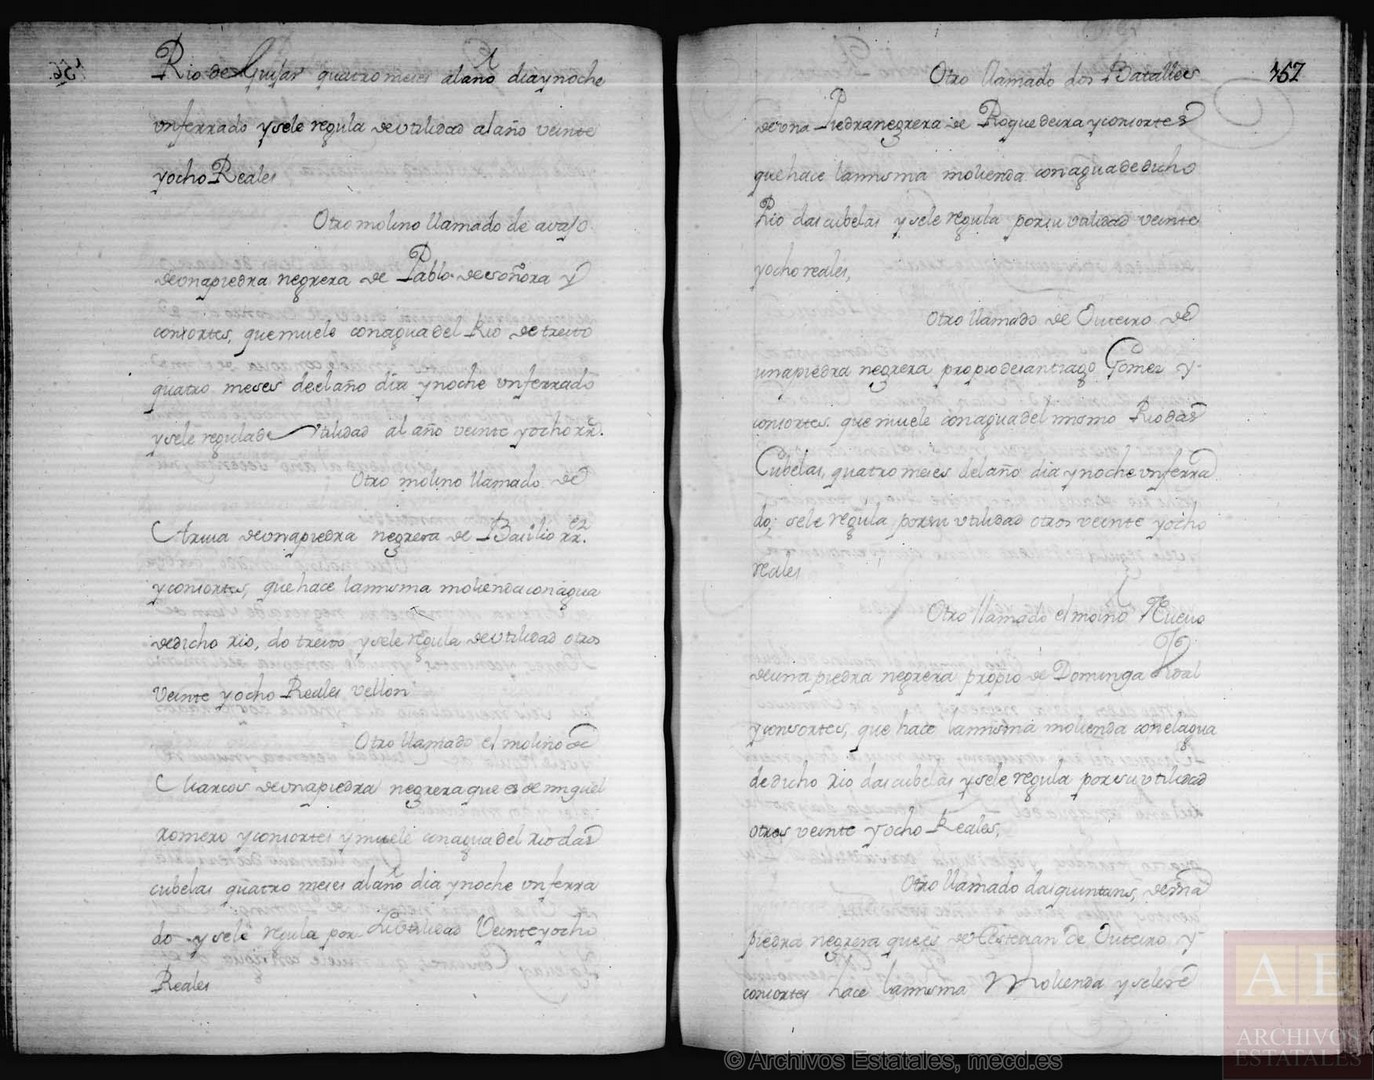 Rio de Guisar quatro meses al año dia y noche
un ferrado y se le regula de utilidad al año veinte
y ocho Reales
Otro molino llamado de avajo
de ona piedra negrera de Pablo de soñora y
consortes, que muele con agua del Rio de treito
quatro meses de el año dia y noche un ferrado
y se le regula de Utilidad al año veinte y ocho rr.
Otro molino llamado de
Arua de ona piedra negrera de Basilio rr.ez
y consortes, que hace la misma molienda con agua
de dicho rio, do treito y se le regula de utilidad otros
veinte y ocho Reales vellon
Otro llamado el molino de
Marcos de ona piedra negrera que es de miguel
romero y consortes y muele con agua del rio das
cubelas quatro meses al año dia y noche un ferra
do y se le regula por su Utilidad Veinte y ocho
Reales
Otro llamado dos Batalles
357
de ona Piedra negrera de Roque deira y consortes
que hace la misma molienda con agua de dicho
Rio das cubelas y se le regula por su utilidad veinte
y ocho reales,
Otro llamado de Outeiro de
una piedra negrera propio de santiago Gomez y
consortes que muele con agua del mismo Rio das
Cubelas, quatro meses del año dia y noche un ferra
do; se le regula por su utilidad otros veinte y ocho
reales
Otro llamado el moino Nuevo
de una piedra negrera propio de Dominga Roal
y consortes, que hace la misma molienda con el agua
de dicho rio das cubelas y se le regula por su utilidad
otros veinte y ocho Reales,
Otro llamado das quintans, de una
piedra negrera que es de Estevan de Outeiro y
consortes hace la misma Molienda y se le re
© Archivos Estatales, mecd.es
AE
ARCHIVOS
ESTATALES